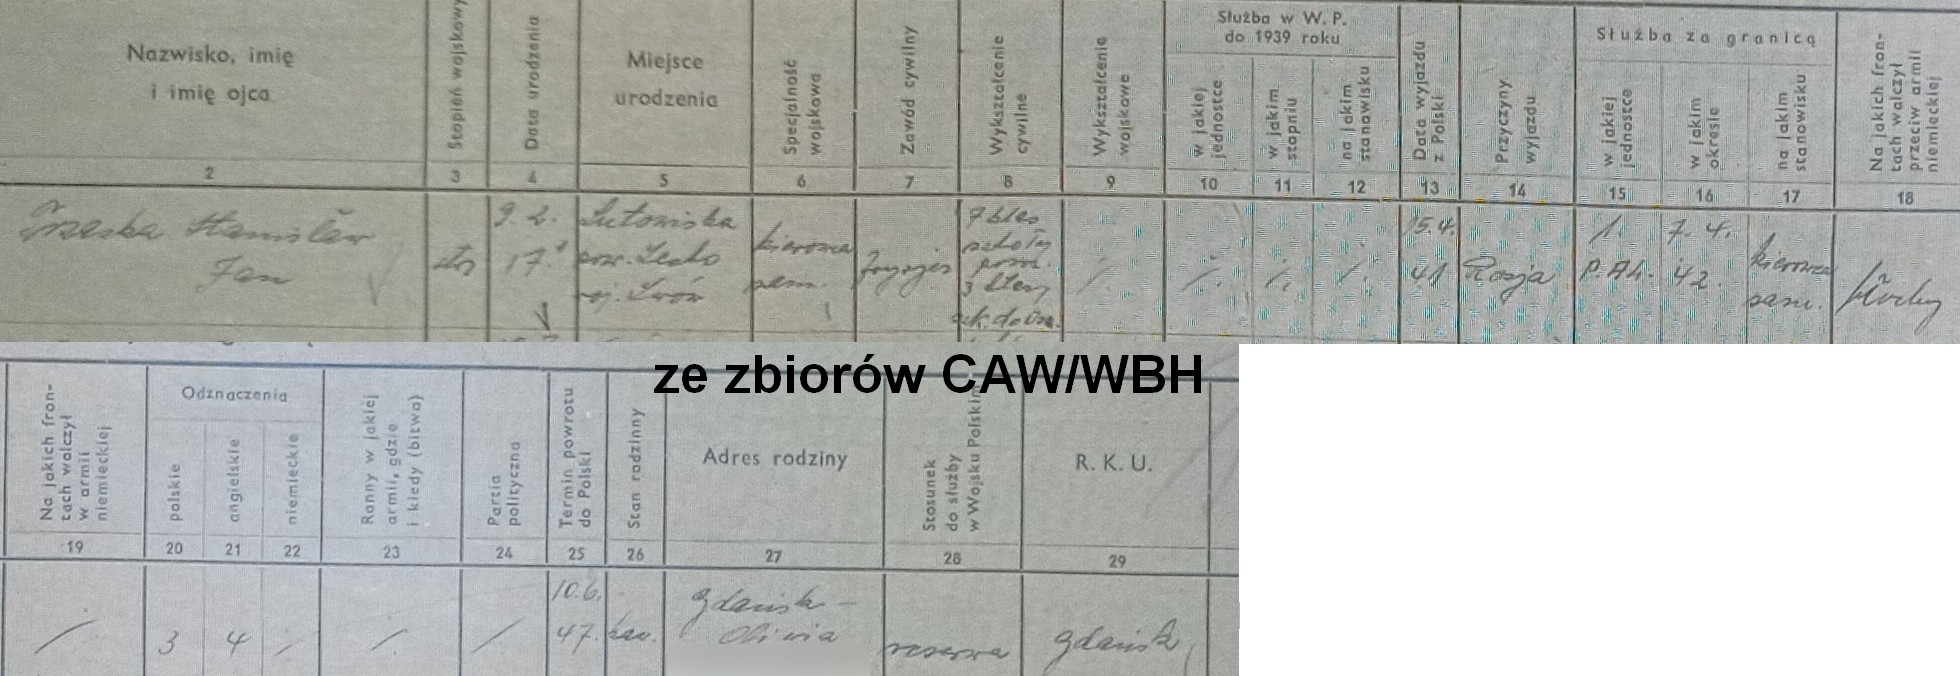 Nazwisko, imię
i imię ojca
Stopień wojskowy
Data urodzenia
Miejsce
urodzenia
Specjalność
wojskowa
Zawód cywilny
Wykształcenie
cywilne
Wykształcenie
wojskowe
Służba w W. P.
do 1939 roku
w jakiej
jednostce
w jakim
stopniu
na jakim
stanowisku
Data wyjazdu
z Polski
Przyczyny
wyjazdu
Służba za granicą
w jakiej
jednostce
w jakim
okresie
na jakim
stanowisku
Na jakich fron-
tach walczył
przeciw armii
niemieckiej
2 3 4 5 6 7 8 9 10 11 12 13 14 15 16 17 18
Stanisław
Jan
9. 2.
17.
Lutowiska
pow. Lesko
woj. Lwów
kierowca
sam.
fryzjer
7 klas
szkoły
pow.
3 klasy
szk. dokszt.
15. 4.
41
Rosja
1.
P.A.L.
7. 4.
42.
kierowca
sam.
Włochy
ze zbiorów CAW/WBH
Na jakich fron-
tach walczył
w armii
niemieckiej
Odznaczenia
polskie
angielskie
niemieckie
Ranny w jakiej
armii, gdzie
i kiedy (bitwa)
Partia
polityczna
Termin powrotu
do Polski
Stan rodzinny
Adres rodziny
Stosunek
do służby
w Wojsku Polskim
R. K. U.
19 20 21 22 23 24 25 26 27 28 29
3
4
10.6.
47.
kaw.
Gdańsk -
Oliwa
rezerwa
Gdańsk